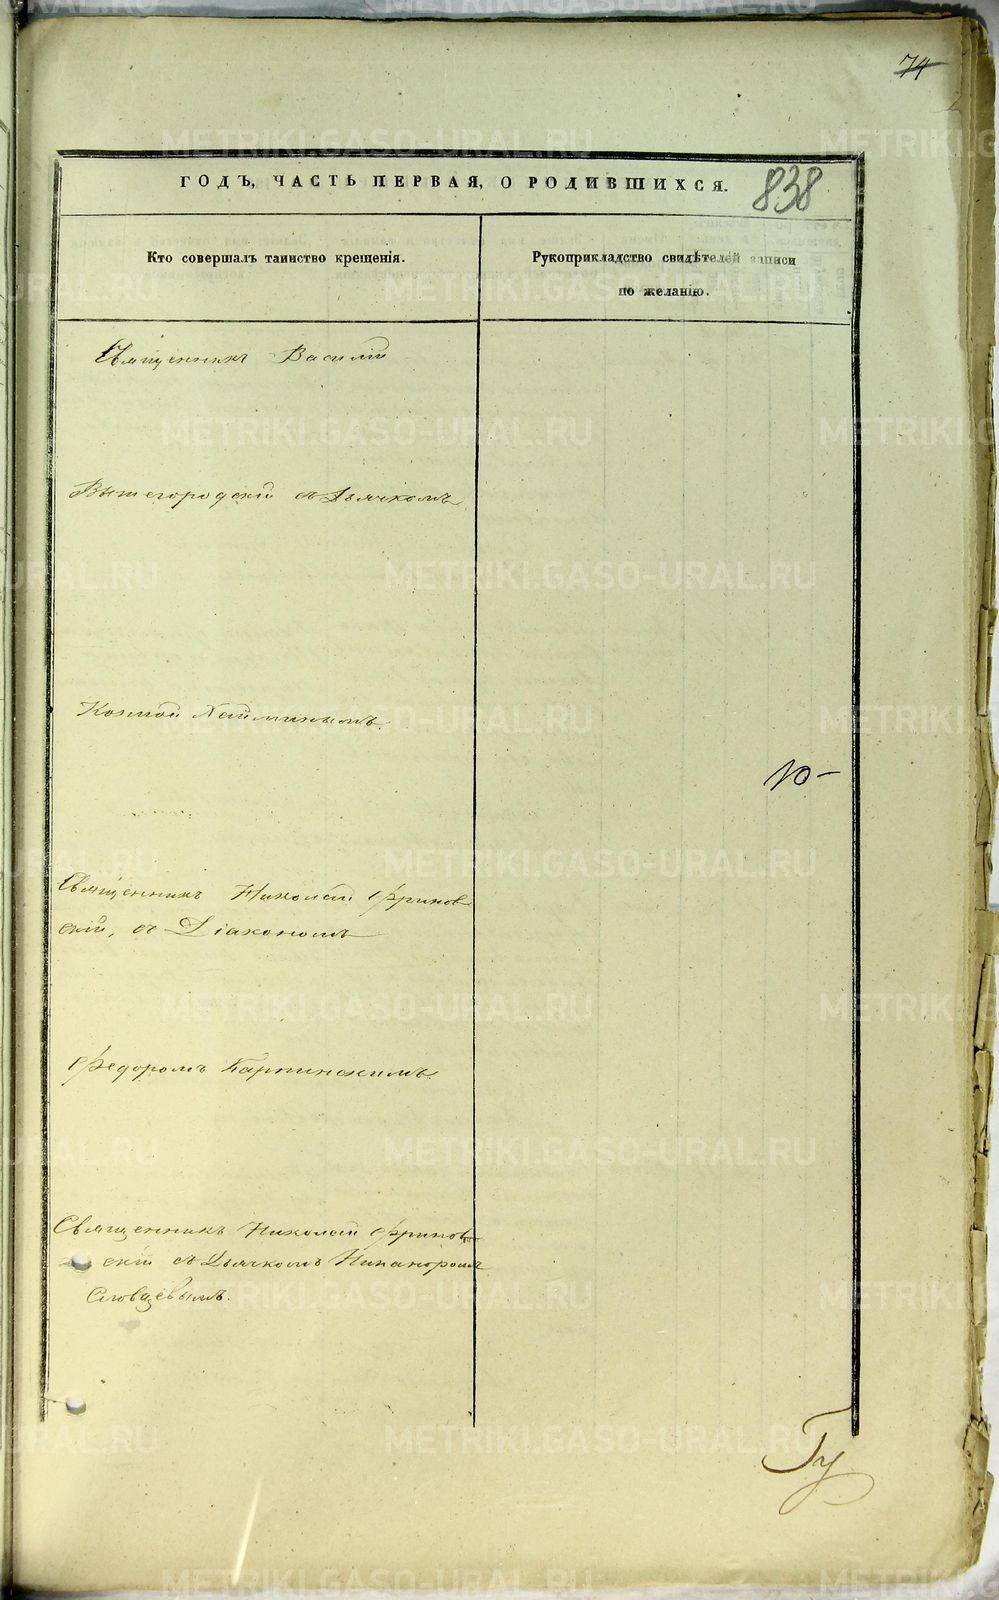 74
ГОДЪ, ЧАСТЬ ПЕРВАЯ, О РОДИВШИХСЯ.
838
Кто совершалъ таинство крещенія.
Рукоприкладство свидѣтелей записи
по желанію.
Священникъ Василій
Вышегородскій съ Дьячкомъ
Козмой Хайминымъ.
10-
Священникъ Николай Фринов
скій, съ Діакономъ
Федоромъ Карпинскимъ.
Священникъ Николай Фринов
скій съ Дьячкомъ Никаноромъ
Словцевымъ.
METRIKI.GASO-URAL.RU